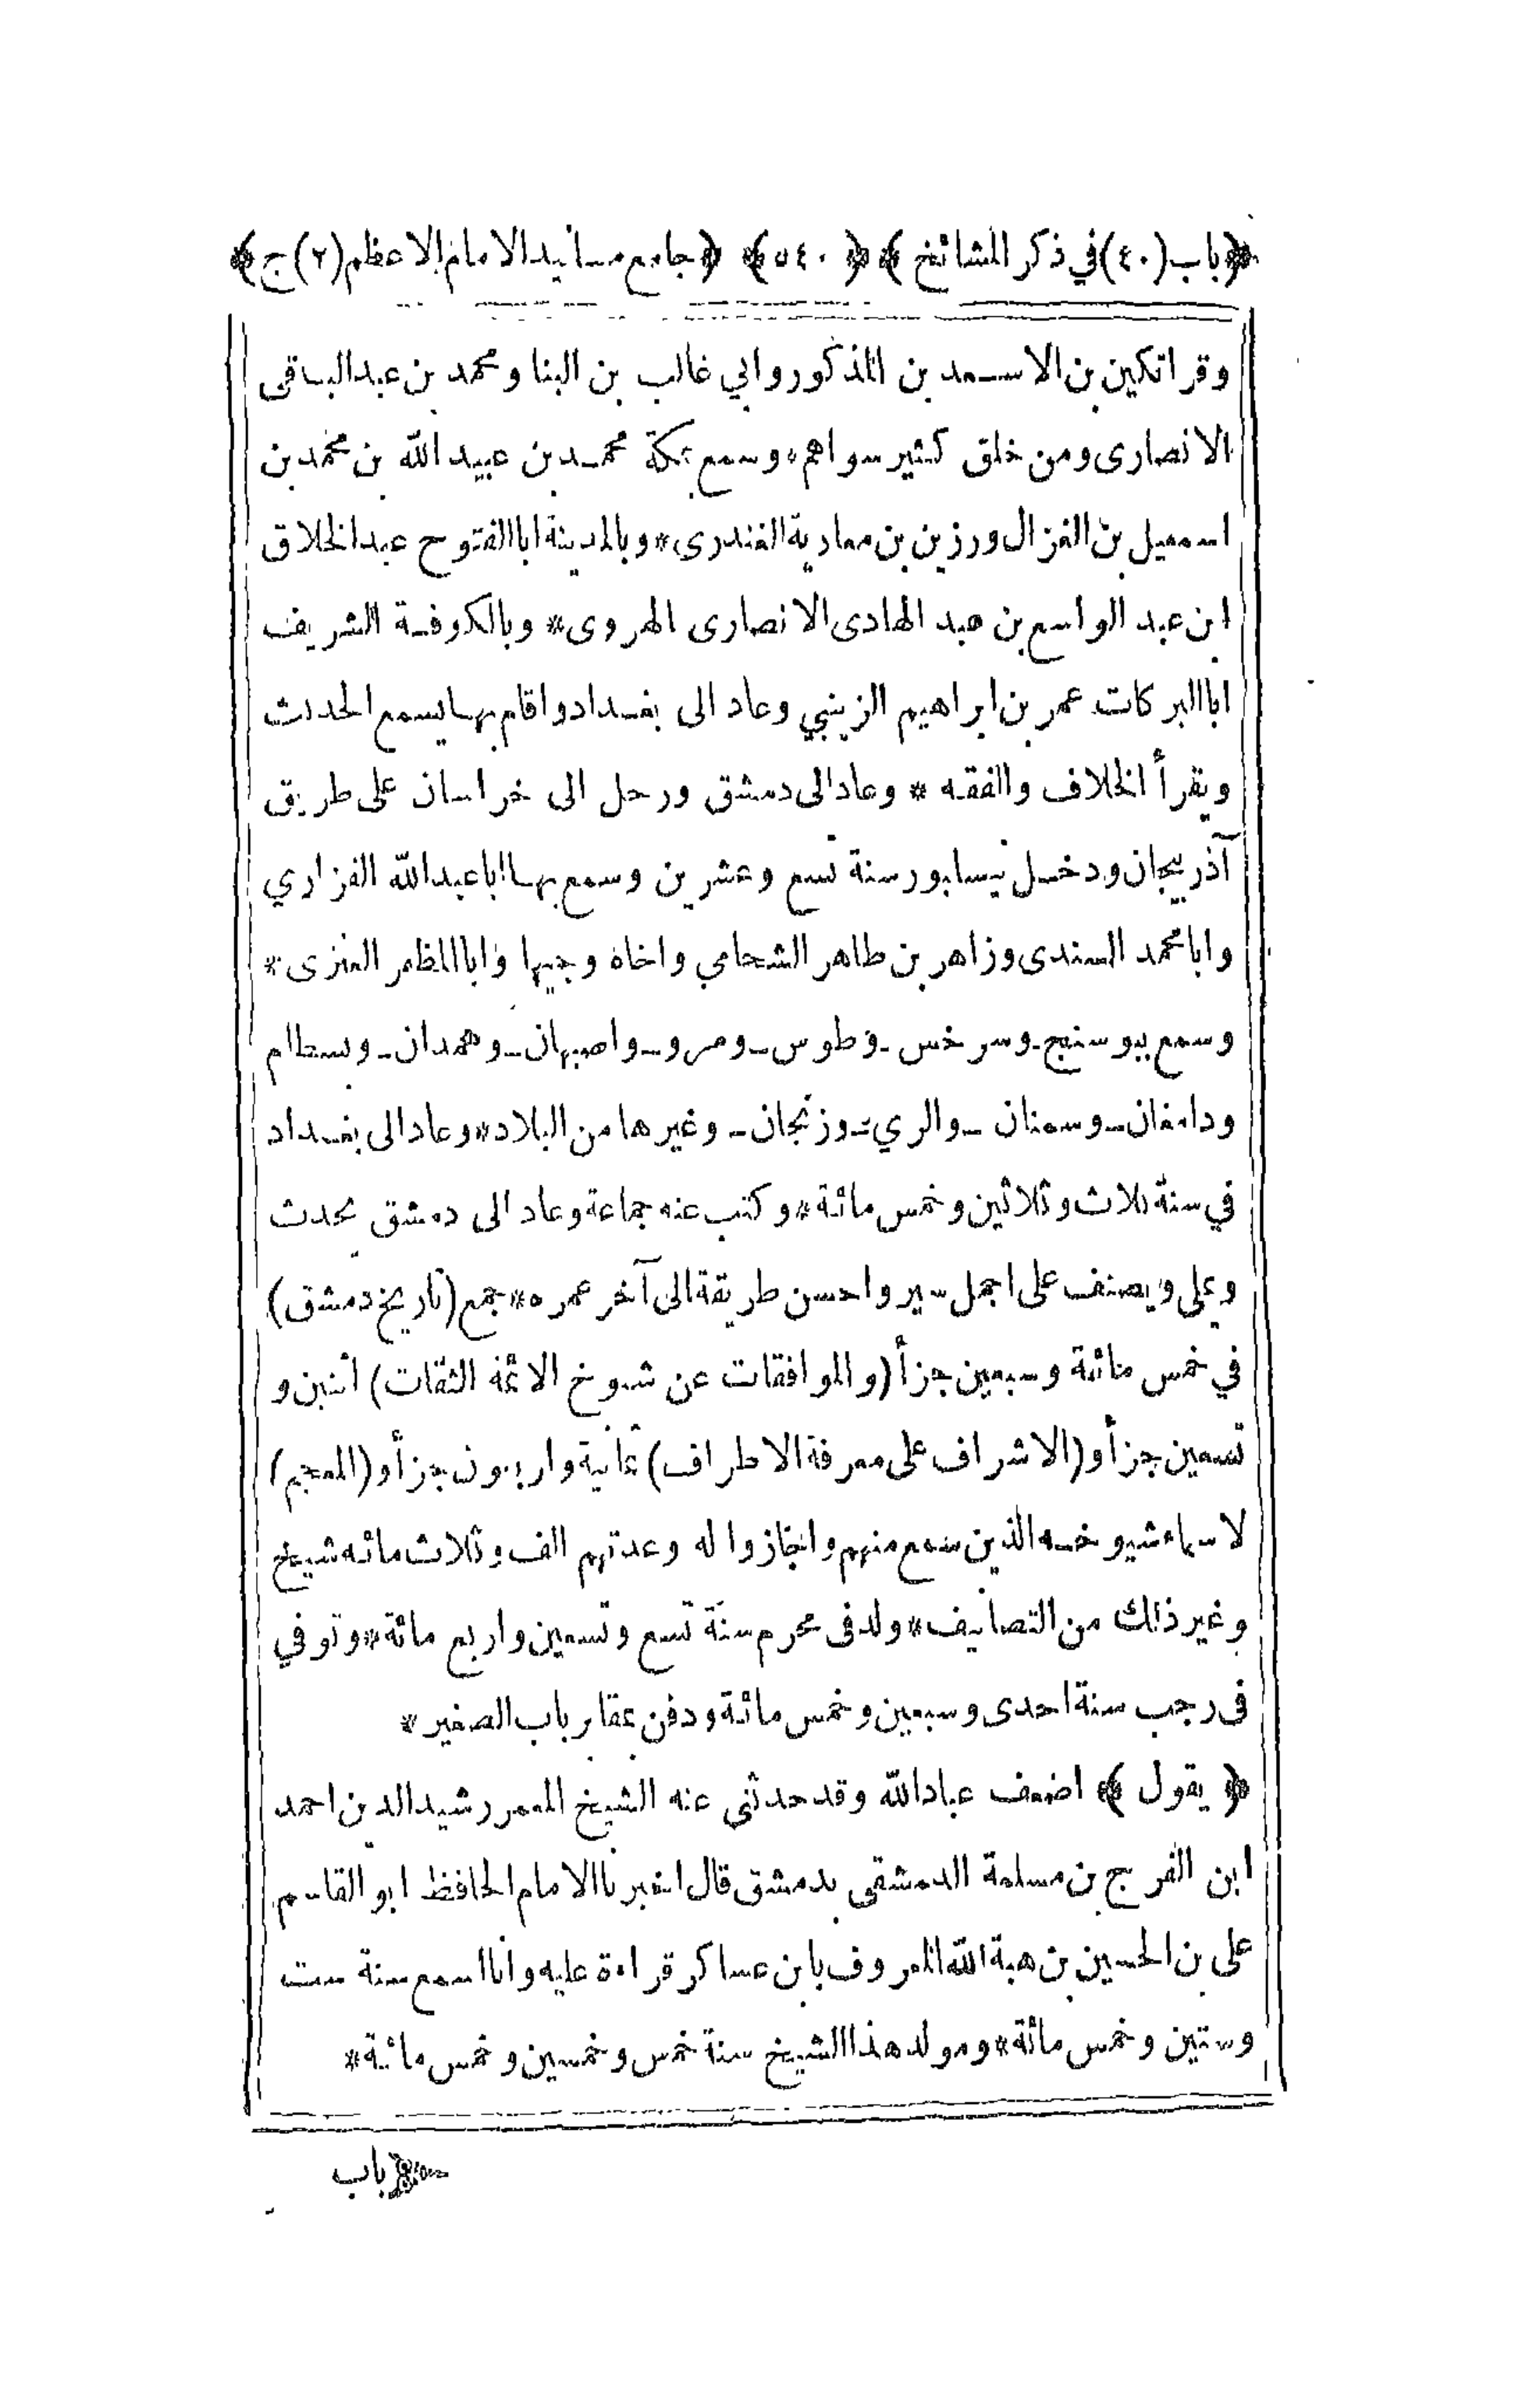 ﴿باب (٤٠) في ذكر المشائخ﴾ ﴿٥٤٠﴾ ﴿جامع مسانيد الامام الاعظم (٢) ج﴾
وقراتكين بن الاسعد بن المذكور وابي غالب بن البنا ومحمد بن عبد الباقى
الانصارى ومن خلق كثير سواهم * وسمع بمكة محمد بن عبيد الله بن محمد بن
اسمعيل بن الغزال ورزين بن معاوية الغندرى * وبالمدينة ابا الفتوح عبد الخلاق
ابن عبد الواسع بن عبد الهادى الانصارى الهروى * وبالكوفة الشريف
ابا البركات عمر بن ابراهيم الزينبي وعاد الى بغداد واقام بها يسمع الحديث
ويقرأ الخلاف والفقه * وعاد الى دمشق ورحل الى خراسان على طريق
آذربيجان ودخل نيسابور سنة تسع وعشرين وسمع بها ابا عبد الله الفزاري
وابا محمد السندى وزاهر بن طاهر الشحامي واخاه وجيها وابا المظفر العنزى *
وسمع ببوسنج ـ وسرخس ـ وطوس ـ ومرو ـ واصبهان ـ وهمدان ـ وبسطام
ودامغان ـ وسمنان ـ والري ـ وزنجان ـ وغيرها من البلاد * وعاد الى بغداد
في سنة ثلاث وثلاثين وخمس مائة * وكتب عنه جماعة وعاد الى دمشق يحدث
ويملي ويصنف على اجمل سير واحسن طريقة الى آخر عمره * جمع (تاريخ دمشق)
في خمس مائة وسبعين جزأ (والموافقات عن شيوخ الائمة الثقات) اثنين و
تسعين جزأ و (الاشراف على معرفة الاطراف) ثمانية واربعون جزأ و (المعجم)
لاسماء شيوخه الذين سمع منهم واجازوا له وعدتهم الف وثلاث مائه شيخ
وغير ذلك من التصانيف * ولد فى محرم سنة تسع وتسعين واربع مائة * وتوفي
فى رجب سنة احدى وسبعين وخمس مائة ودفن بمقابر باب الصغير *
﴿يقول﴾ اضعف عباد الله وقد حدثنى عنه الشيخ المعمر رشيد الدين احمد
ابن الفرج بن مسلمة الدمشقى بدمشق قال اخبرنا الامام الحافظ ابو القاسم
على بن الحسين بن هبة الله المعروف بابن عساكر قراءة عليه وانا اسمع سنة ست
وستين وخمس مائة * ومولد هذا الشيخ سنة خمس وخمسين وخمس مائة *
باب